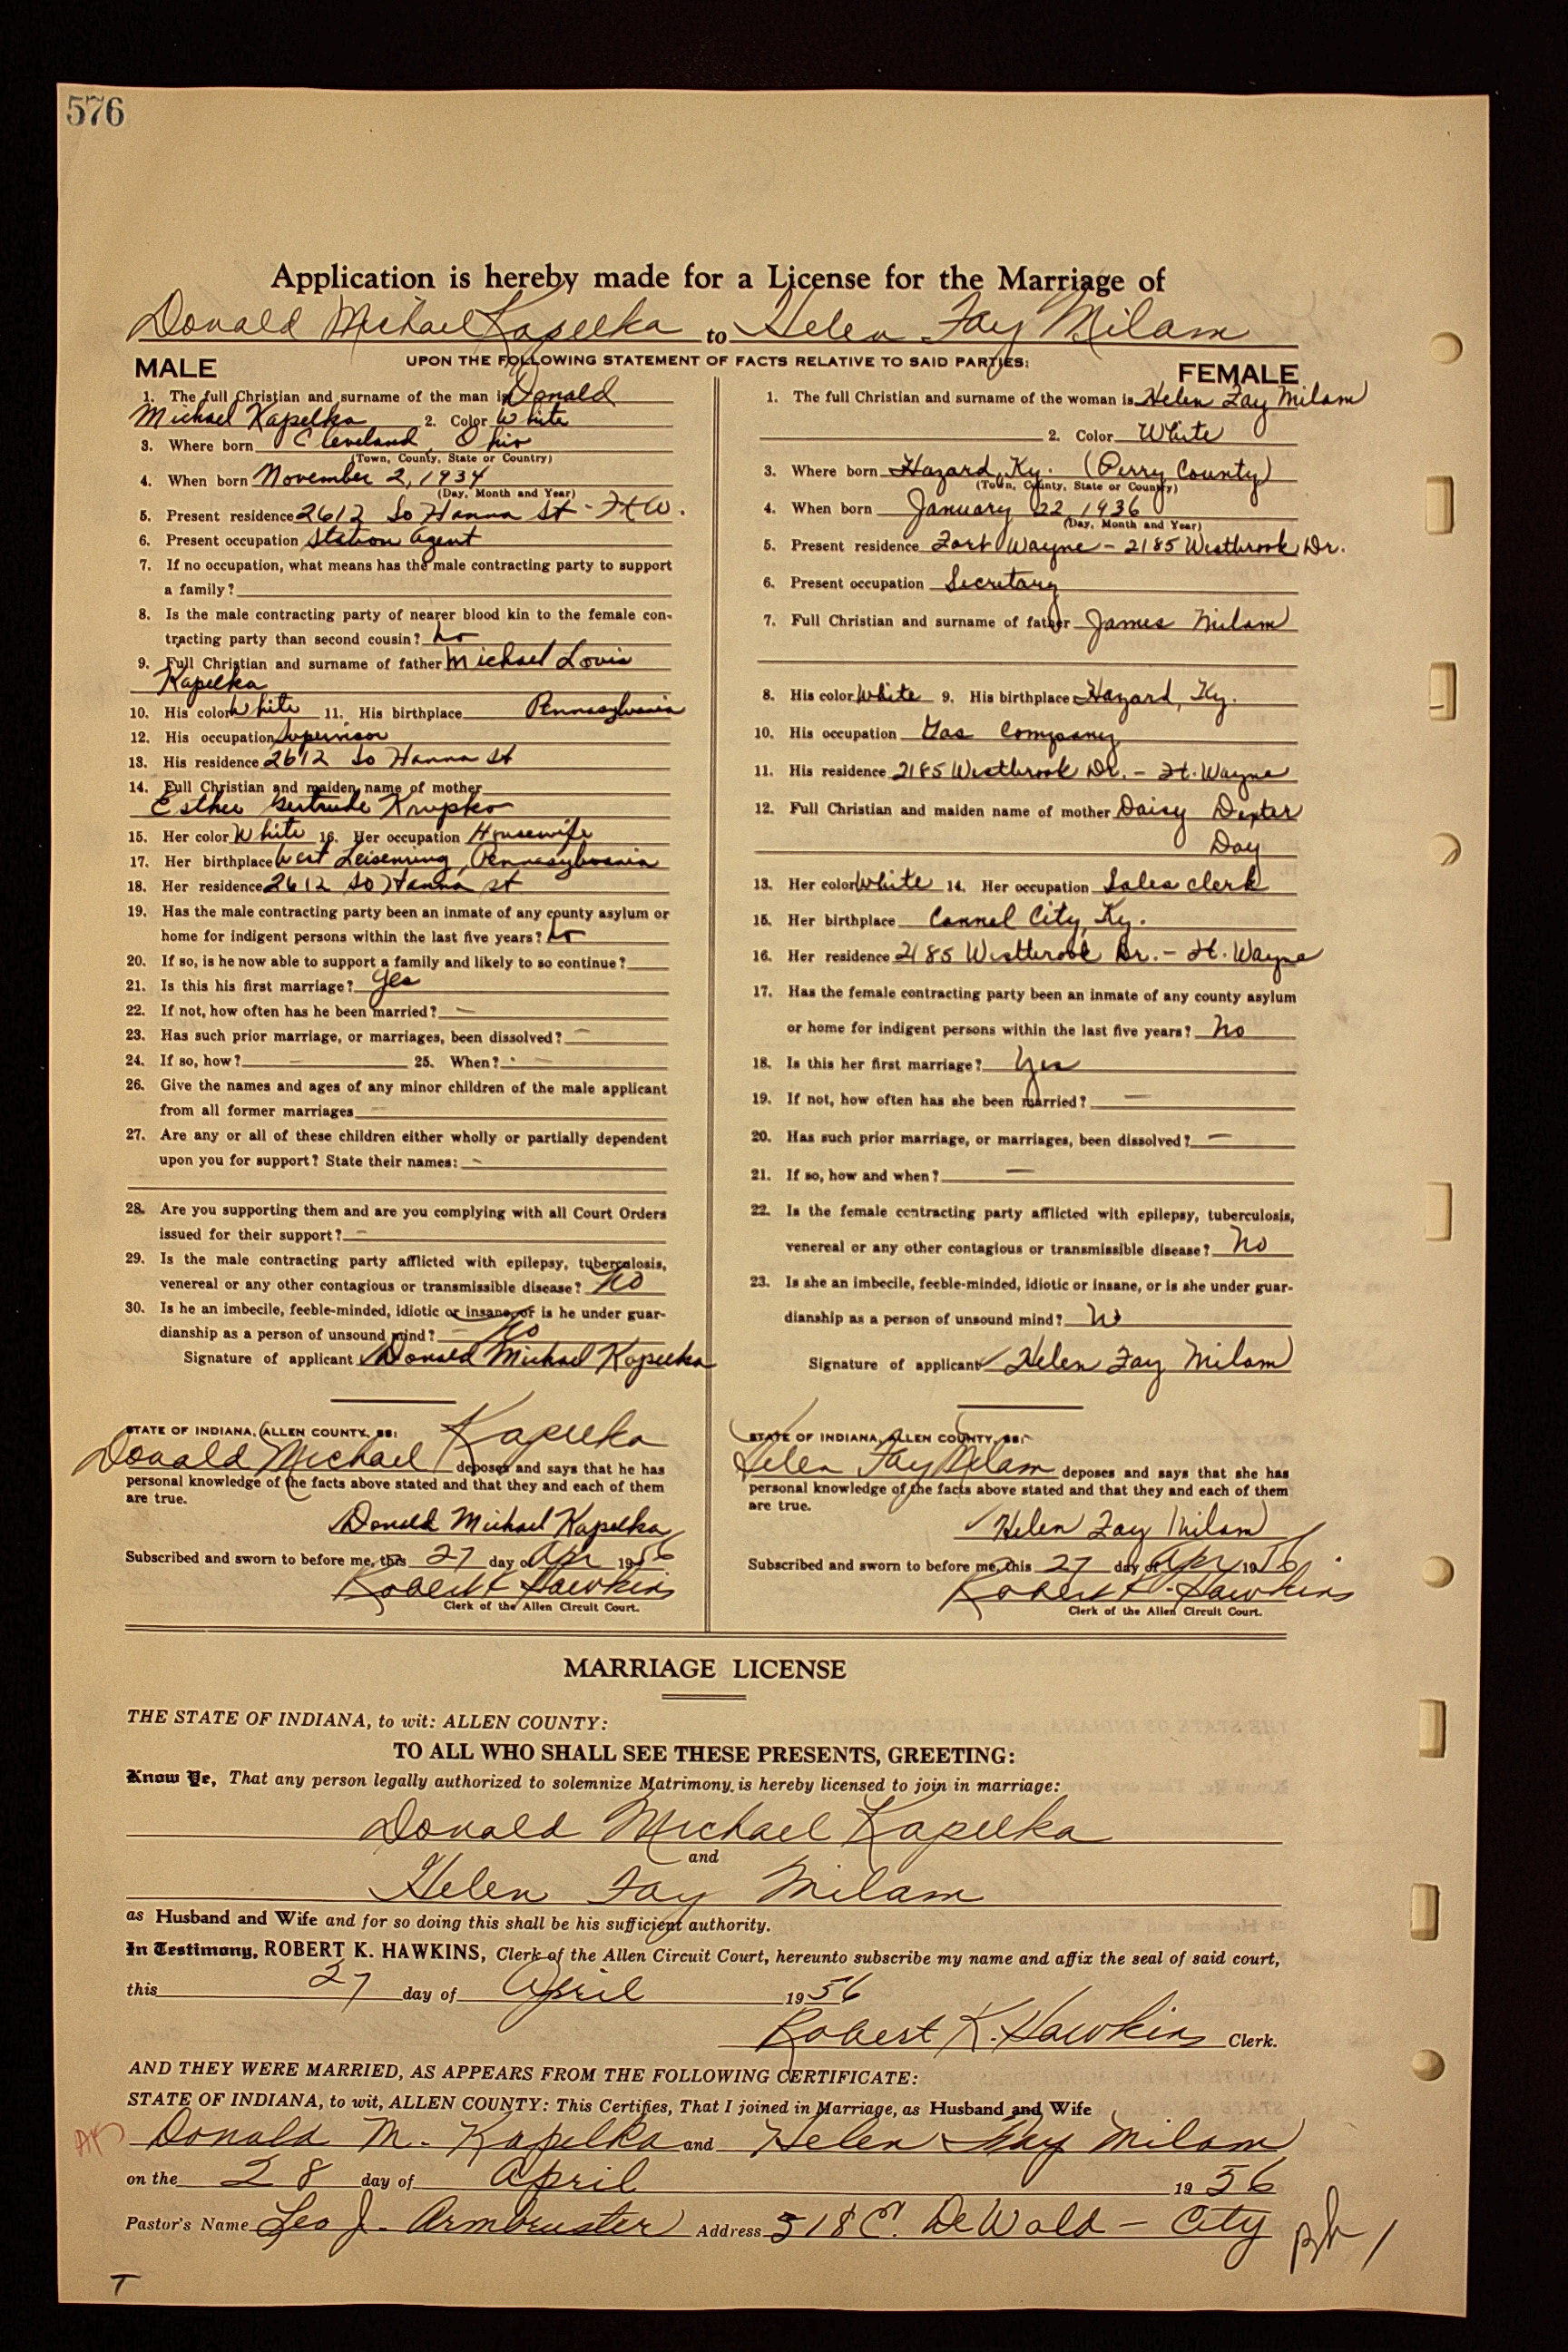 576
Application is hereby made for a License for the Marriage of
Donald Michael Kapelka to Helen Fay Milam
UPON THE FOLLOWING STATEMENT OF FACTS RELATIVE TO SAID PARTIES:
MALE
1. The full Christian and surname of the man is Donald
Michael Kapelka 2. Color White
3. Where born Cleveland, Ohio
(Town, County, State or Country)
4. When born November 2, 1934
(Day, Month and Year)
5. Present residence 2612 So Hanna St - Ft W.
6. Present occupation Station Agent
7. If no occupation, what means has the male contracting party to support
a family?
8. Is the male contracting party of nearer blood kin to the female con-
tracting party than second cousin? no
9. Full Christian and surname of father Michael Louis
Kapelka
10. His color White 11. His birthplace Pennsylvania
12. His occupation Supervisor
13. His residence 2612 So Hanna St
14. Full Christian and maiden name of mother
Esther Gertrude Krupko
15. Her color White 16. Her occupation Housewife
17. Her birthplace West Leisenring, Pennsylvania
18. Her residence 2612 So Hanna St
19. Has the male contracting party been an inmate of any county asylum or
home for indigent persons within the last five years? no
20. If so, is he now able to support a family and likely to so continue?
21. Is this his first marriage? Yes
22. If not, how often has he been married? —
23. Has such prior marriage, or marriages, been dissolved? —
24. If so, how? — 25. When? —
26. Give the names and ages of any minor children of the male applicant
from all former marriages —
27. Are any or all of these children either wholly or partially dependent
upon you for support? State their names: —
28. Are you supporting them and are you complying with all Court Orders
issued for their support? —
29. Is the male contracting party afflicted with epilepsy, tuberculosis,
venereal or any other contagious or transmissible disease? No
30. Is he an imbecile, feeble-minded, idiotic or insane, or is he under guar-
dianship as a person of unsound mind? — No
Signature of applicant Donald Michael Kapelka
STATE OF INDIANA, ALLEN COUNTY, SS:
Donald Michael Kapelka deposes and says that he has
personal knowledge of the facts above stated and that they and each of them
are true.
Donald Michael Kapelka
Subscribed and sworn to before me, this 27 day of Apr 1956
Robert K Hawkins
Clerk of the Allen Circuit Court.
FEMALE
1. The full Christian and surname of the woman is Helen Fay Milam
2. Color White
3. Where born Hazard, Ky. (Perry County)
(Town, County, State or Country)
4. When born January 22, 1936
(Day, Month and Year)
5. Present residence Fort Wayne - 2185 Westbrook Dr.
6. Present occupation Secretary
7. Full Christian and surname of father James Milam
8. His color White 9. His birthplace Hazard, Ky.
10. His occupation Gas Company
11. His residence 2185 Westbrook Dr. - Ft. Wayne
12. Full Christian and maiden name of mother Daisy Dexter
Day
13. Her color White 14. Her occupation Sales clerk
15. Her birthplace Cannel City, Ky.
16. Her residence 2185 Westbrook Dr. - Ft. Wayne
17. Has the female contracting party been an inmate of any county asylum
or home for indigent persons within the last five years? No
18. Is this her first marriage? Yes
19. If not, how often has she been married? —
20. Has such prior marriage, or marriages, been dissolved? —
21. If so, how and when? —
22. Is the female contracting party afflicted with epilepsy, tuberculosis,
venereal or any other contagious or transmissible disease? No
23. Is she an imbecile, feeble-minded, idiotic or insane, or is she under guar-
dianship as a person of unsound mind? No
Signature of applicant Helen Fay Milam
STATE OF INDIANA, ALLEN COUNTY, SS:
Helen Fay Milam deposes and says that she has
personal knowledge of the facts above stated and that they and each of them
are true.
Helen Fay Milam
Subscribed and sworn to before me, this 27 day of Apr 1956
Robert K. Hawkins
Clerk of the Allen Circuit Court.
MARRIAGE LICENSE
THE STATE OF INDIANA, to wit: ALLEN COUNTY:
TO ALL WHO SHALL SEE THESE PRESENTS, GREETING:
Know Ye, That any person legally authorized to solemnize Matrimony, is hereby licensed to join in marriage:
Donald Michael Kapelka
and
Helen Fay Milam
as Husband and Wife and for so doing this shall be his sufficient authority.
In Testimony, ROBERT K. HAWKINS, Clerk of the Allen Circuit Court, hereunto subscribe my name and affix the seal of said court,
this 27 day of April 1956
Robert K. Hawkins Clerk.
AND THEY WERE MARRIED, AS APPEARS FROM THE FOLLOWING CERTIFICATE:
STATE OF INDIANA, to wit, ALLEN COUNTY: This Certifies, That I joined in Marriage, as Husband and Wife
Donald M. Kapelka and Helen Fay Milam
on the 28 day of April 1956
Pastor's Name Leo J. Armbruster Address 518 E. DeWald - City
T